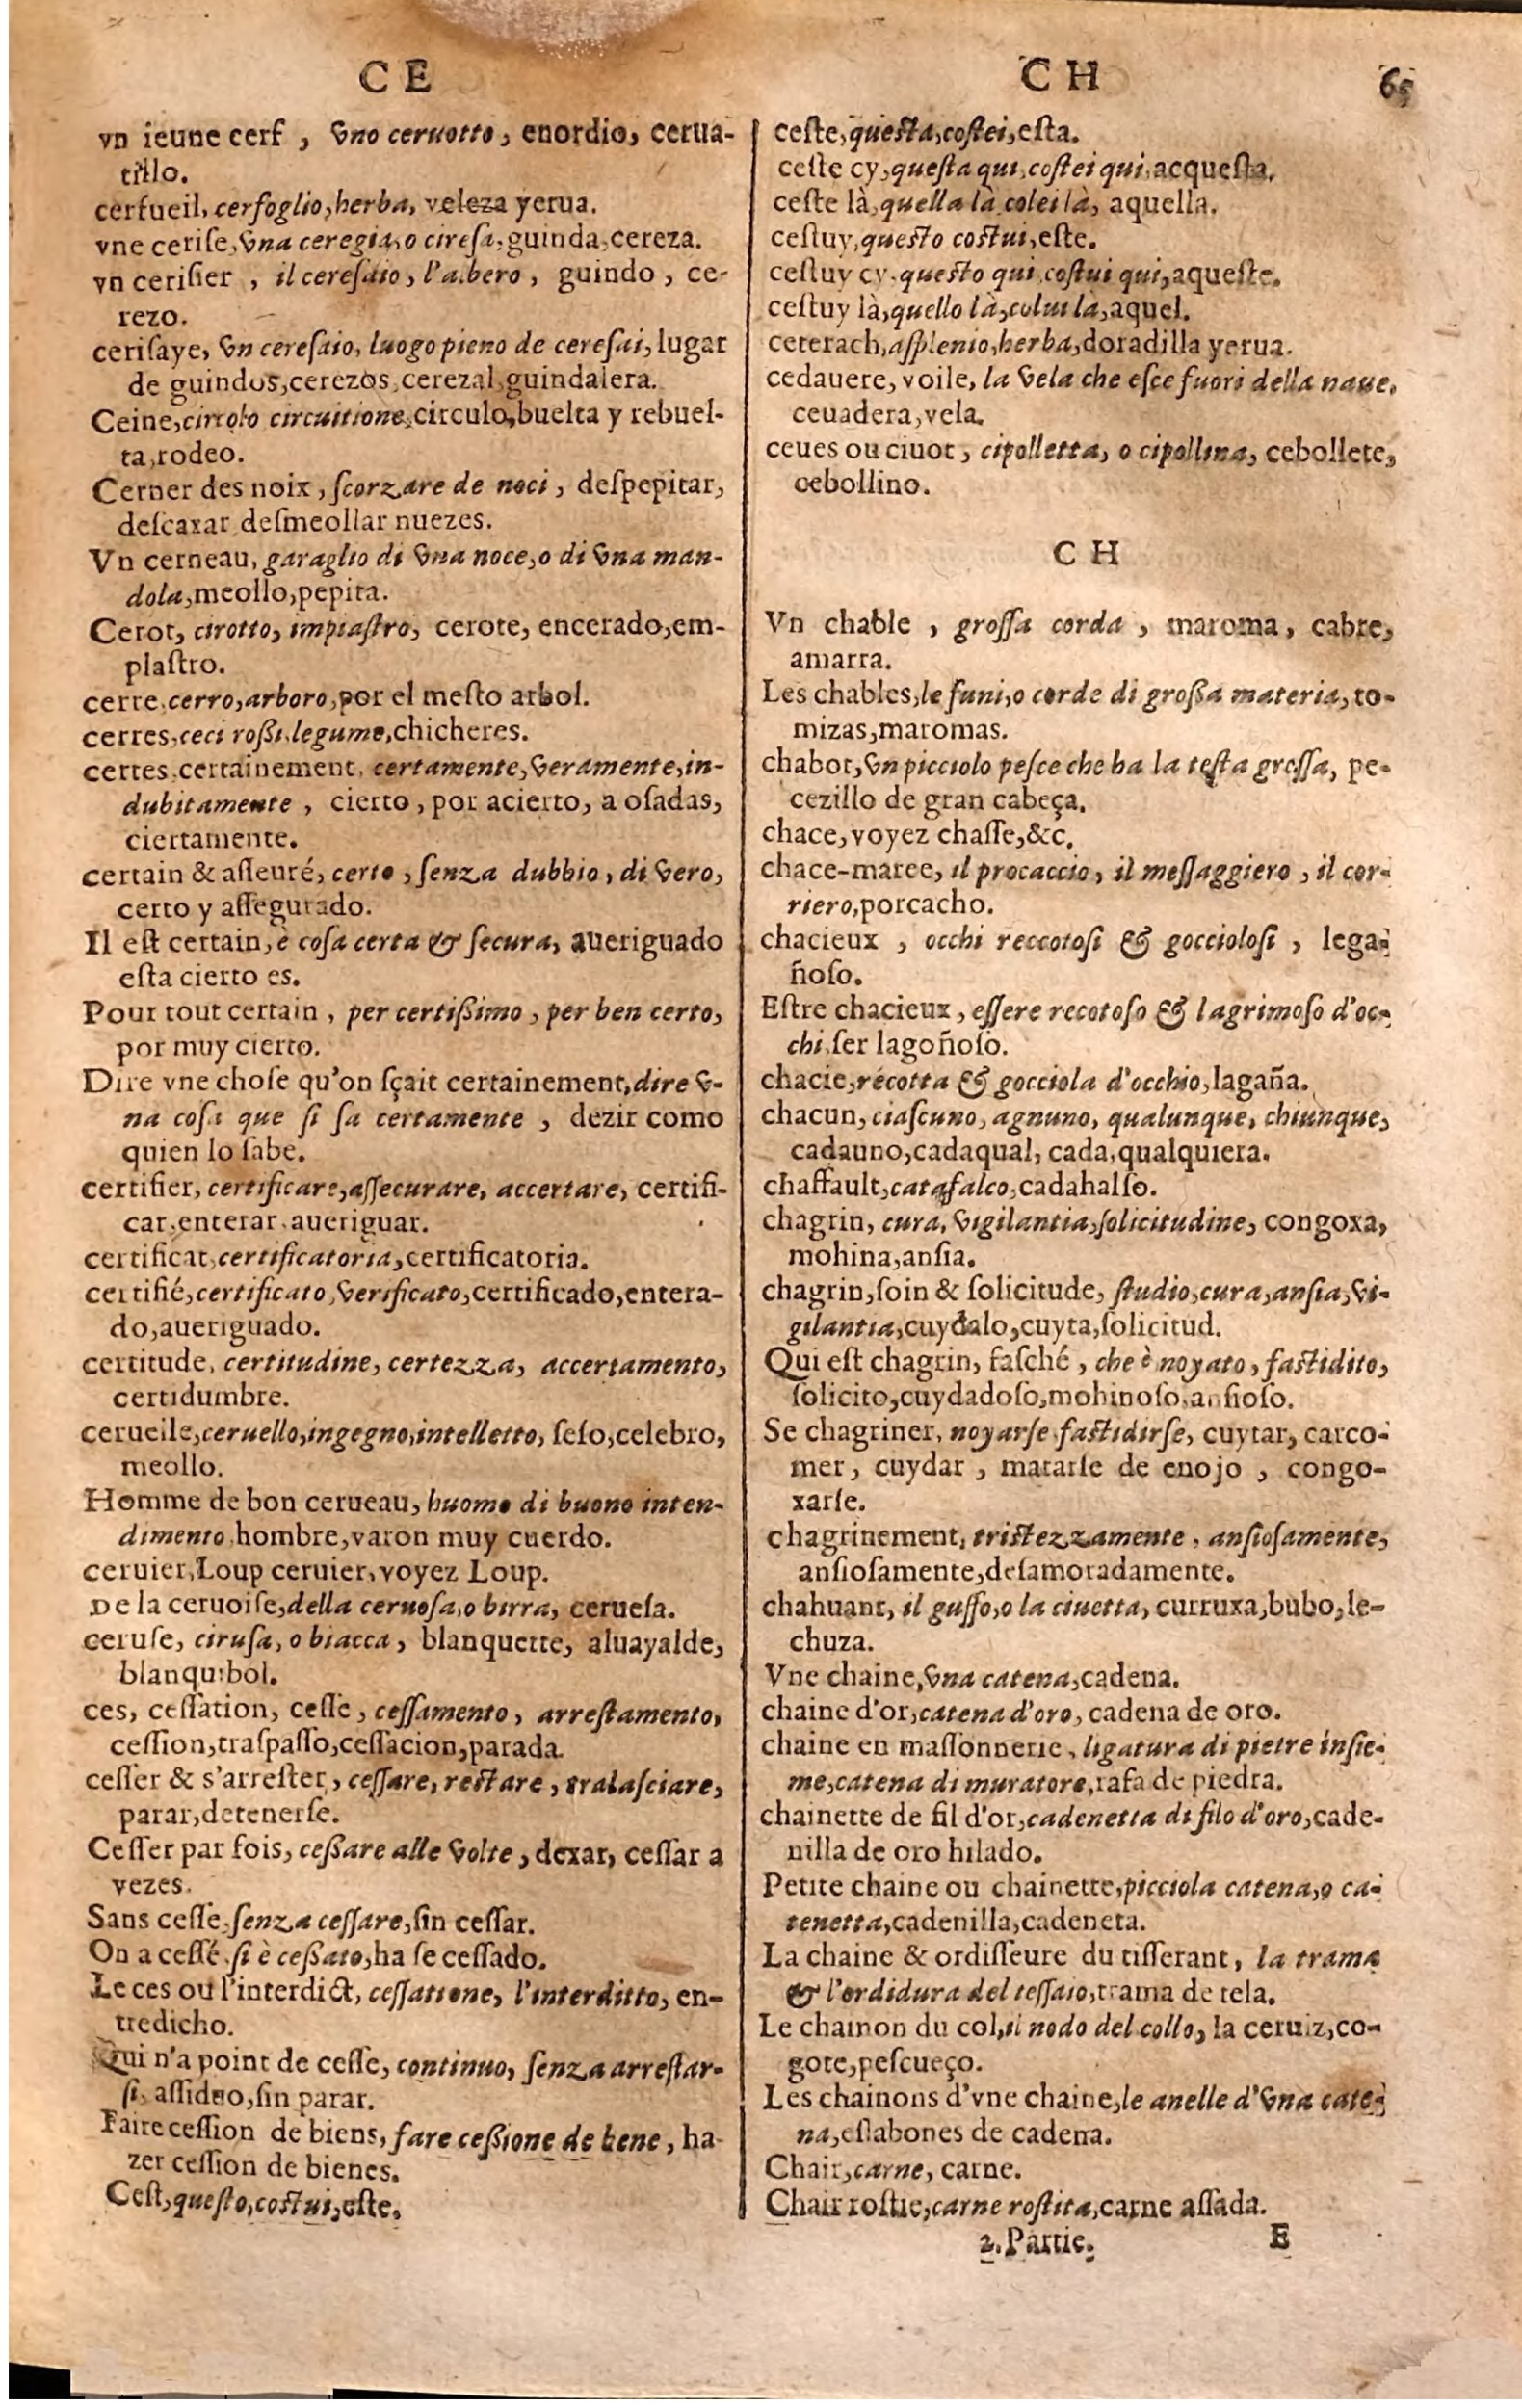 CE
vn ieune cerf , vno ceruotto, enordio, cerua-
tillo.
cerfueil, cerfoglio, herba, veleza yerua.
vne cerise, vna ceregia, o ciresa, guinda, cereza.
vn cerisier , il ceresaio, l'albero , guindo , ce-
rezo.
cerisaye, vn ceresaio, luogo pieno de ceresai, lugar
de guindos, cerezos, cerezal, guindalera.
Ceine, circolo circuitione, circulo, buelta y rebuel-
ta, rodeo.
Cerner des noix, scorzare de noci, despepitar,
descaxar desmeollar nuezes.
Vn cerneau, garaglio di vna noce, o di vna man-
dola, meollo, pepita.
Cerot, cirotto, impiastro, cerote, encerado, em-
plastro.
cerre, cerro, arboro, por el mesto arbol.
cerres, ceci roßi, legume, chicheres.
certes, certainement, certamente, veramente, in-
dubitamente , cierto , por acierto, a osadas,
ciertamente.
certain & asseuré, certo , senza dubbio, di vero,
certo y assegurado.
Il est certain, è cosa certa & secura, aueriguado
esta cierto es.
Pour tout certain , per certißimo, per ben certo,
por muy cierto.
Dire vne chose qu'on sçait certainement, dire v-
na cosa que si sa certamente , dezir como
quien lo sabe.
certifier, certificare, assecurare, accertare, certifi-
car, enterar, aueriguar.
certificat, certificatoria, certificatoria.
certifié, certificato, verificato, certificado, entera-
do, aueriguado.
certitude, certitudine, certezza, accertamento,
certidumbre.
cerueile, ceruello, ingegno, intelletto, seso, celebro,
meollo.
Homme de bon cerueau, huomo di buono inten-
dimento, hombre, varon muy cuerdo.
ceruier, Loup ceruier, voyez Loup.
De la ceruoise, della ceruosa, o birra, ceruesa.
ceruse, cirusa, o biacca, blanquette, aluayalde,
blanquibol.
ces, cessation, cesse, cessamento, arrestamento,
cession, traspasso, cessacion, parada.
cesser & s'arrester, cessare, restare, tralasciare,
parar, detenerse.
Cesser par fois, ceßare alle volte, dexar, cessar a
vezes.
Sans cesse, senza cessare, sin cessar.
On a cessé, si è ceßato, ha se cessado.
Le ces ou l'interdict, cessatione, l'interditto, en-
tredicho.
Qui n'a point de cesse, continuo, senza arrestar-
si, assiduo, sin parar.
Faire cession de biens, fare ceßione de bene, ha-
zer cession de bienes.
Cest, questo, costui, este.
CH 65
ceste, questa, costei, esta.
ceste cy, questa qui, costei qui, acquesta.
ceste là, quella là, colei là, aquella.
cestuy, questo costui, este.
cestuy cy, questo qui, costui qui, aqueste.
cestuy là, quello là, colui la, aquel.
ceterach, asplenio, herba, doradilla yerua.
cedauere, voile, la vela che esce fuori della naue,
ceuadera, vela.
ceues ou ciuot, cipolletta, o cipollina, cebollete,
cebollino.
CH
Vn chable , grossa corda , maroma, cabre,
amarra.
Les chables, le funi, o corde di großa materia, to-
mizas, maromas.
chabot, vn picciolo pesce che ha la testa grossa, pe-
cezillo de gran cabeça.
chace, voyez chasse, &c.
chace-maree, il procaccio, il messaggiero , il cor-
riero, porcacho.
chacieux , occhi reccotosi & gocciolosi , lega-
ñoso.
Estre chacieux, essere recotoso & lagrimoso d'oc-
chi, ser lagoñoso.
chacie, recotta & gocciola d'occhio, lagaña.
chacun, ciascuno, agnuno, qualunque, chiunque,
cadauno, cadaqual, cada, qualquiera.
chaffault, catafalco, cadahalso.
chagrin, cura, vigilantia, solicitudine, congoxa,
mohina, ansia.
chagrin, soin & solicitude, studio, cura, ansia, vi-
gilantia, cuydalo, cuyta, solicitud.
Qui est chagrin, fasché , che è noyato, fastidito,
solicito, cuydadoso, mohinoso, ansioso.
Se chagriner, noyarse fastidirse, cuytar, carco-
mer, cuydar , matarse de enojo , congo-
xarse.
chagrinement, tristezzamente, ansiosamente,
ansiosamente, desamoradamente.
chahuant, il guffo, o la ciuetta, curruxa, bubo, le-
chuza.
Vne chaine, vna catena, cadena.
chaine d'or, catena d'oro, cadena de oro.
chaine en massonnerie, ligatura di pietre insie-
me, catena di muratore, rafa de piedra.
chainette de fil d'or, cadenetta di filo d'oro, cade-
nilla de oro hilado.
Petite chaine ou chainette, picciola catena, o ca-
tenetta, cadenilla, cadeneta.
La chaine & ordisseure du tisserant, la trama
& l'ordidura del tessaio, trama de tela.
Le chainon du col, il nodo del collo, la ceruiz, co-
gote, pescueço.
Les chainons d'vne chaine, le anelle d'vna cate-
na, eslabones de cadena.
Chair, carne, carne.
Chair rostie, carne rostita, carne assada.
2. Partie. E